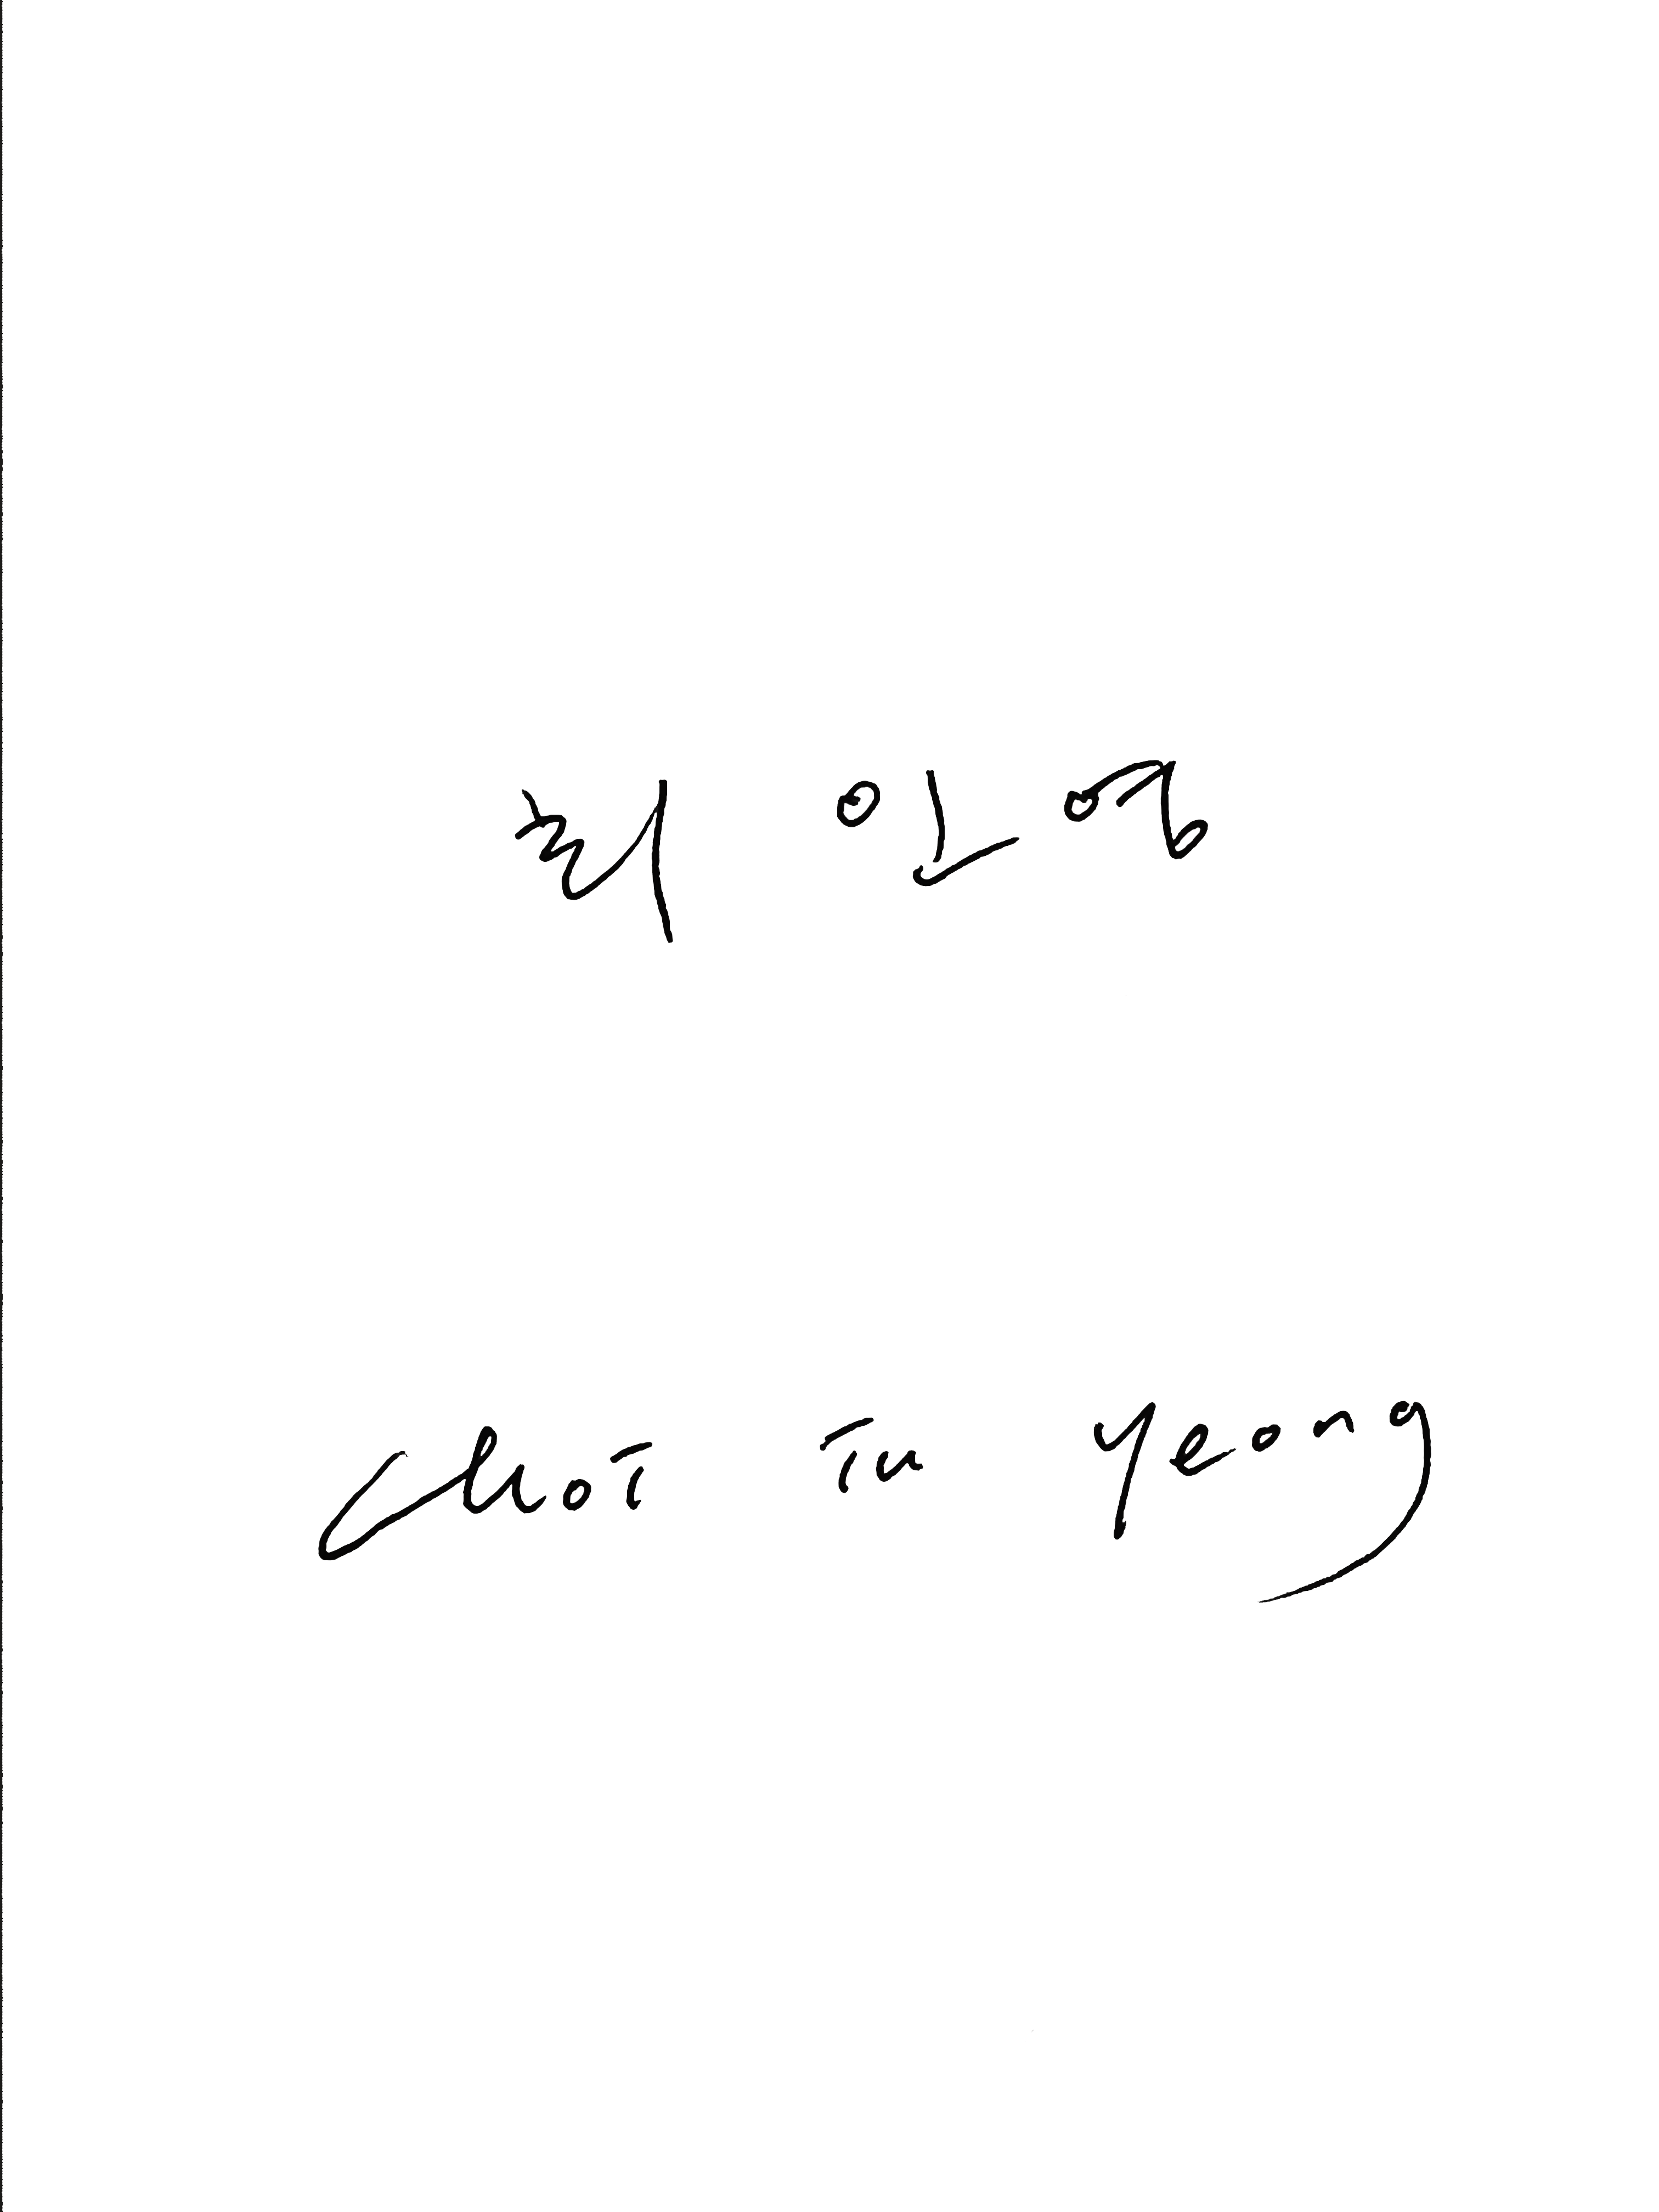 최 인영
Choi In Yeong